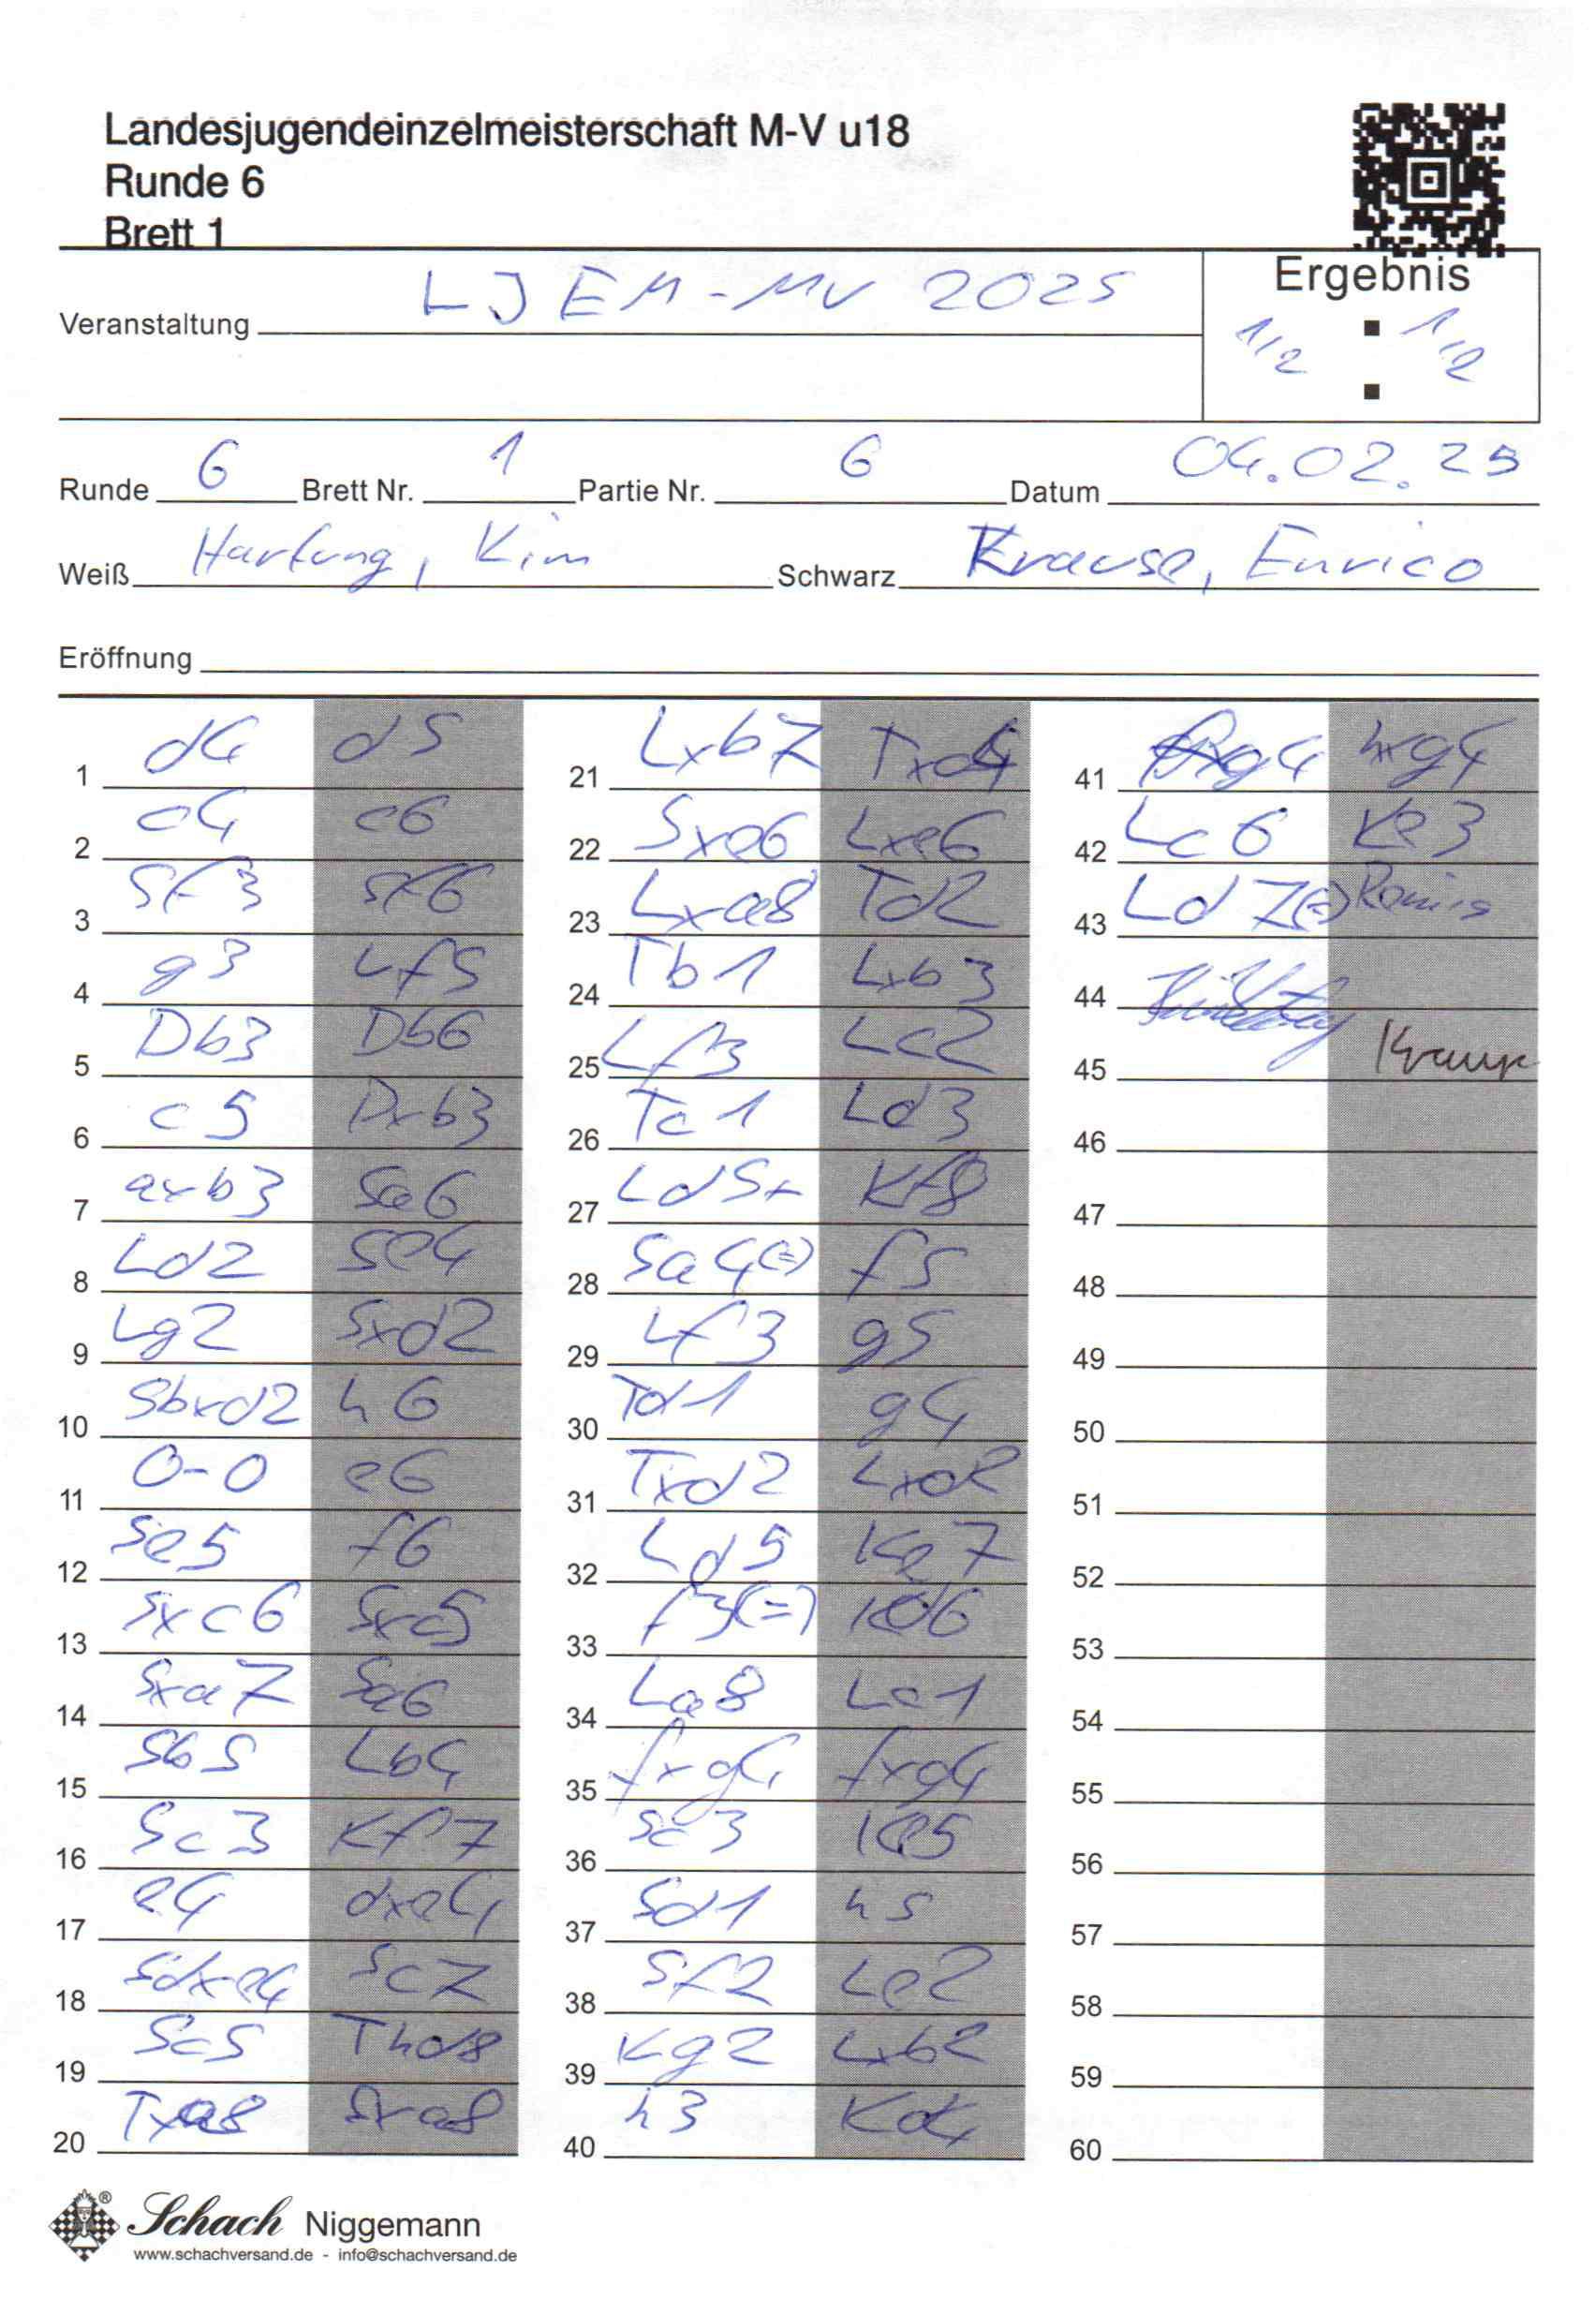 Landesjugendeinzelmeisterschaft M-V u18
Runde 6
Brett 1
Ergebnis
Veranstaltung LJEM-MV 2025
1/2 : 1/2
:
Runde 6 Brett Nr. 1 Partie Nr. 6 Datum 04.02.25
Weiß Hartung, Kim Schwarz Krause, Enrico
Eröffnung
1 d4 d5
2 c4 c6
3 Sf3 Sf6
4 g3 Lf5
5 Db3 Db6
6 c5 Dxb3
7 axb3 Sa6
8 Ld2 Se4
9 Lg2 Sxd2
10 Sbxd2 h6
11 0-0 e6
12 Se5 f6
13 Sxc6 Sxc5
14 Sxa7 Sa6
15 Sb5 Lb4
16 Sc3 Kf7
17 e4 dxe4
18 Sdxe4 Sc7
19 Sc5 Thd8
20 Txa8 Sxa8
21 Lxb7 Txd4
22 Sxe6 Lxe6
23 Lxa8 Td2
24 Tb1 Lxb3
25 Lf3 Lc2
26 Tc1 Ld3
27 Ld5+ Kf8
28 Sa4(=) f5
29 Lf3 g5
30 Td1 g4
31 Txd2 Lxd2
32 Ld5 Ke7
33 f3(=) Kd6
34 La8 Lc1
35 fxg4 fxg4
36 Sc3 Ke5
37 Sd1 h5
38 Sf2 Le2
39 Kg2 Lxb2
40 h3 Kd4
41 hxg4 hxg4
42 Lc6 Ke3
43 Ld7(=) Remis
44
45 Krause
46
47
48
49
50
51
52
53
54
55
56
57
58
59
60
Schach Niggemann
www.schachversand.de - info@schachversand.de